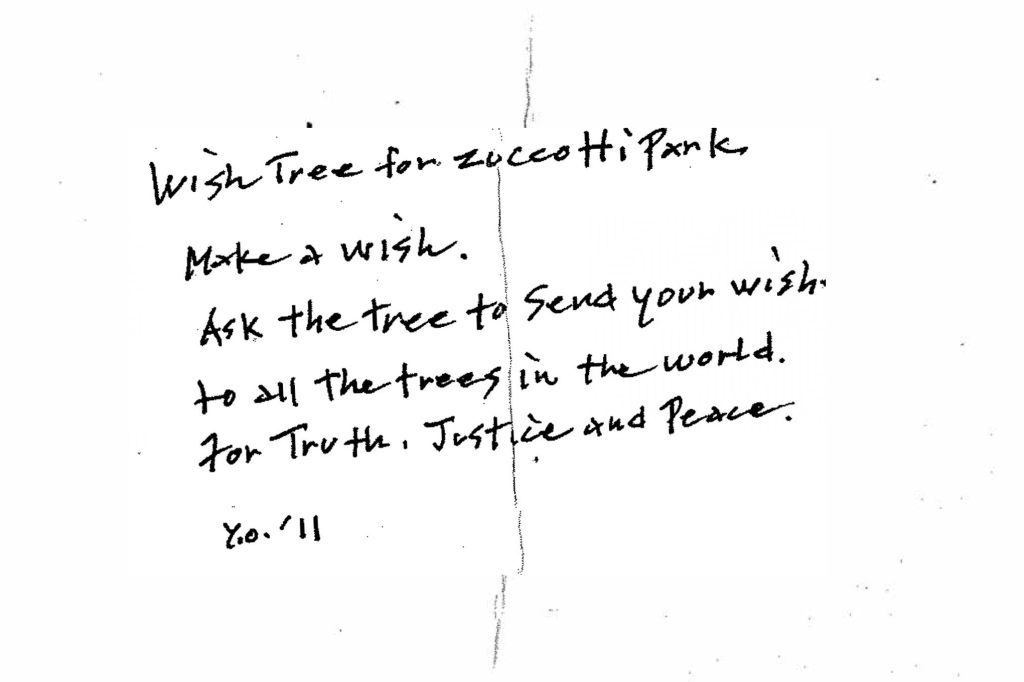 Wish Tree for Zuccotti Park
Make a wish.
Ask the tree to send your wish
to all the trees in the world.
For Truth, Justice and Peace.
Y.O. '11